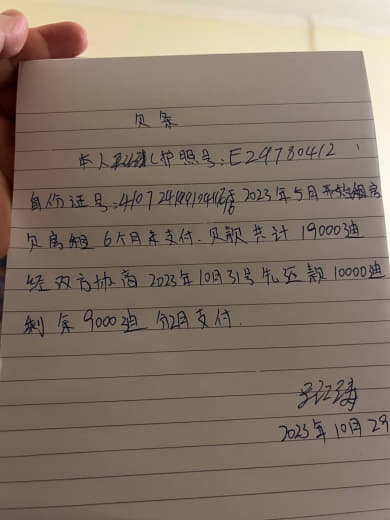 欠条
本人 (护照号:E29780412
身份证号:4107241 2023年5月开始租房
欠房租6个月未支付.欠款共计19000迪
经双方协商2023年10月31号先还款10000迪
剩余9000迪 分2月支付.
2023年10月29